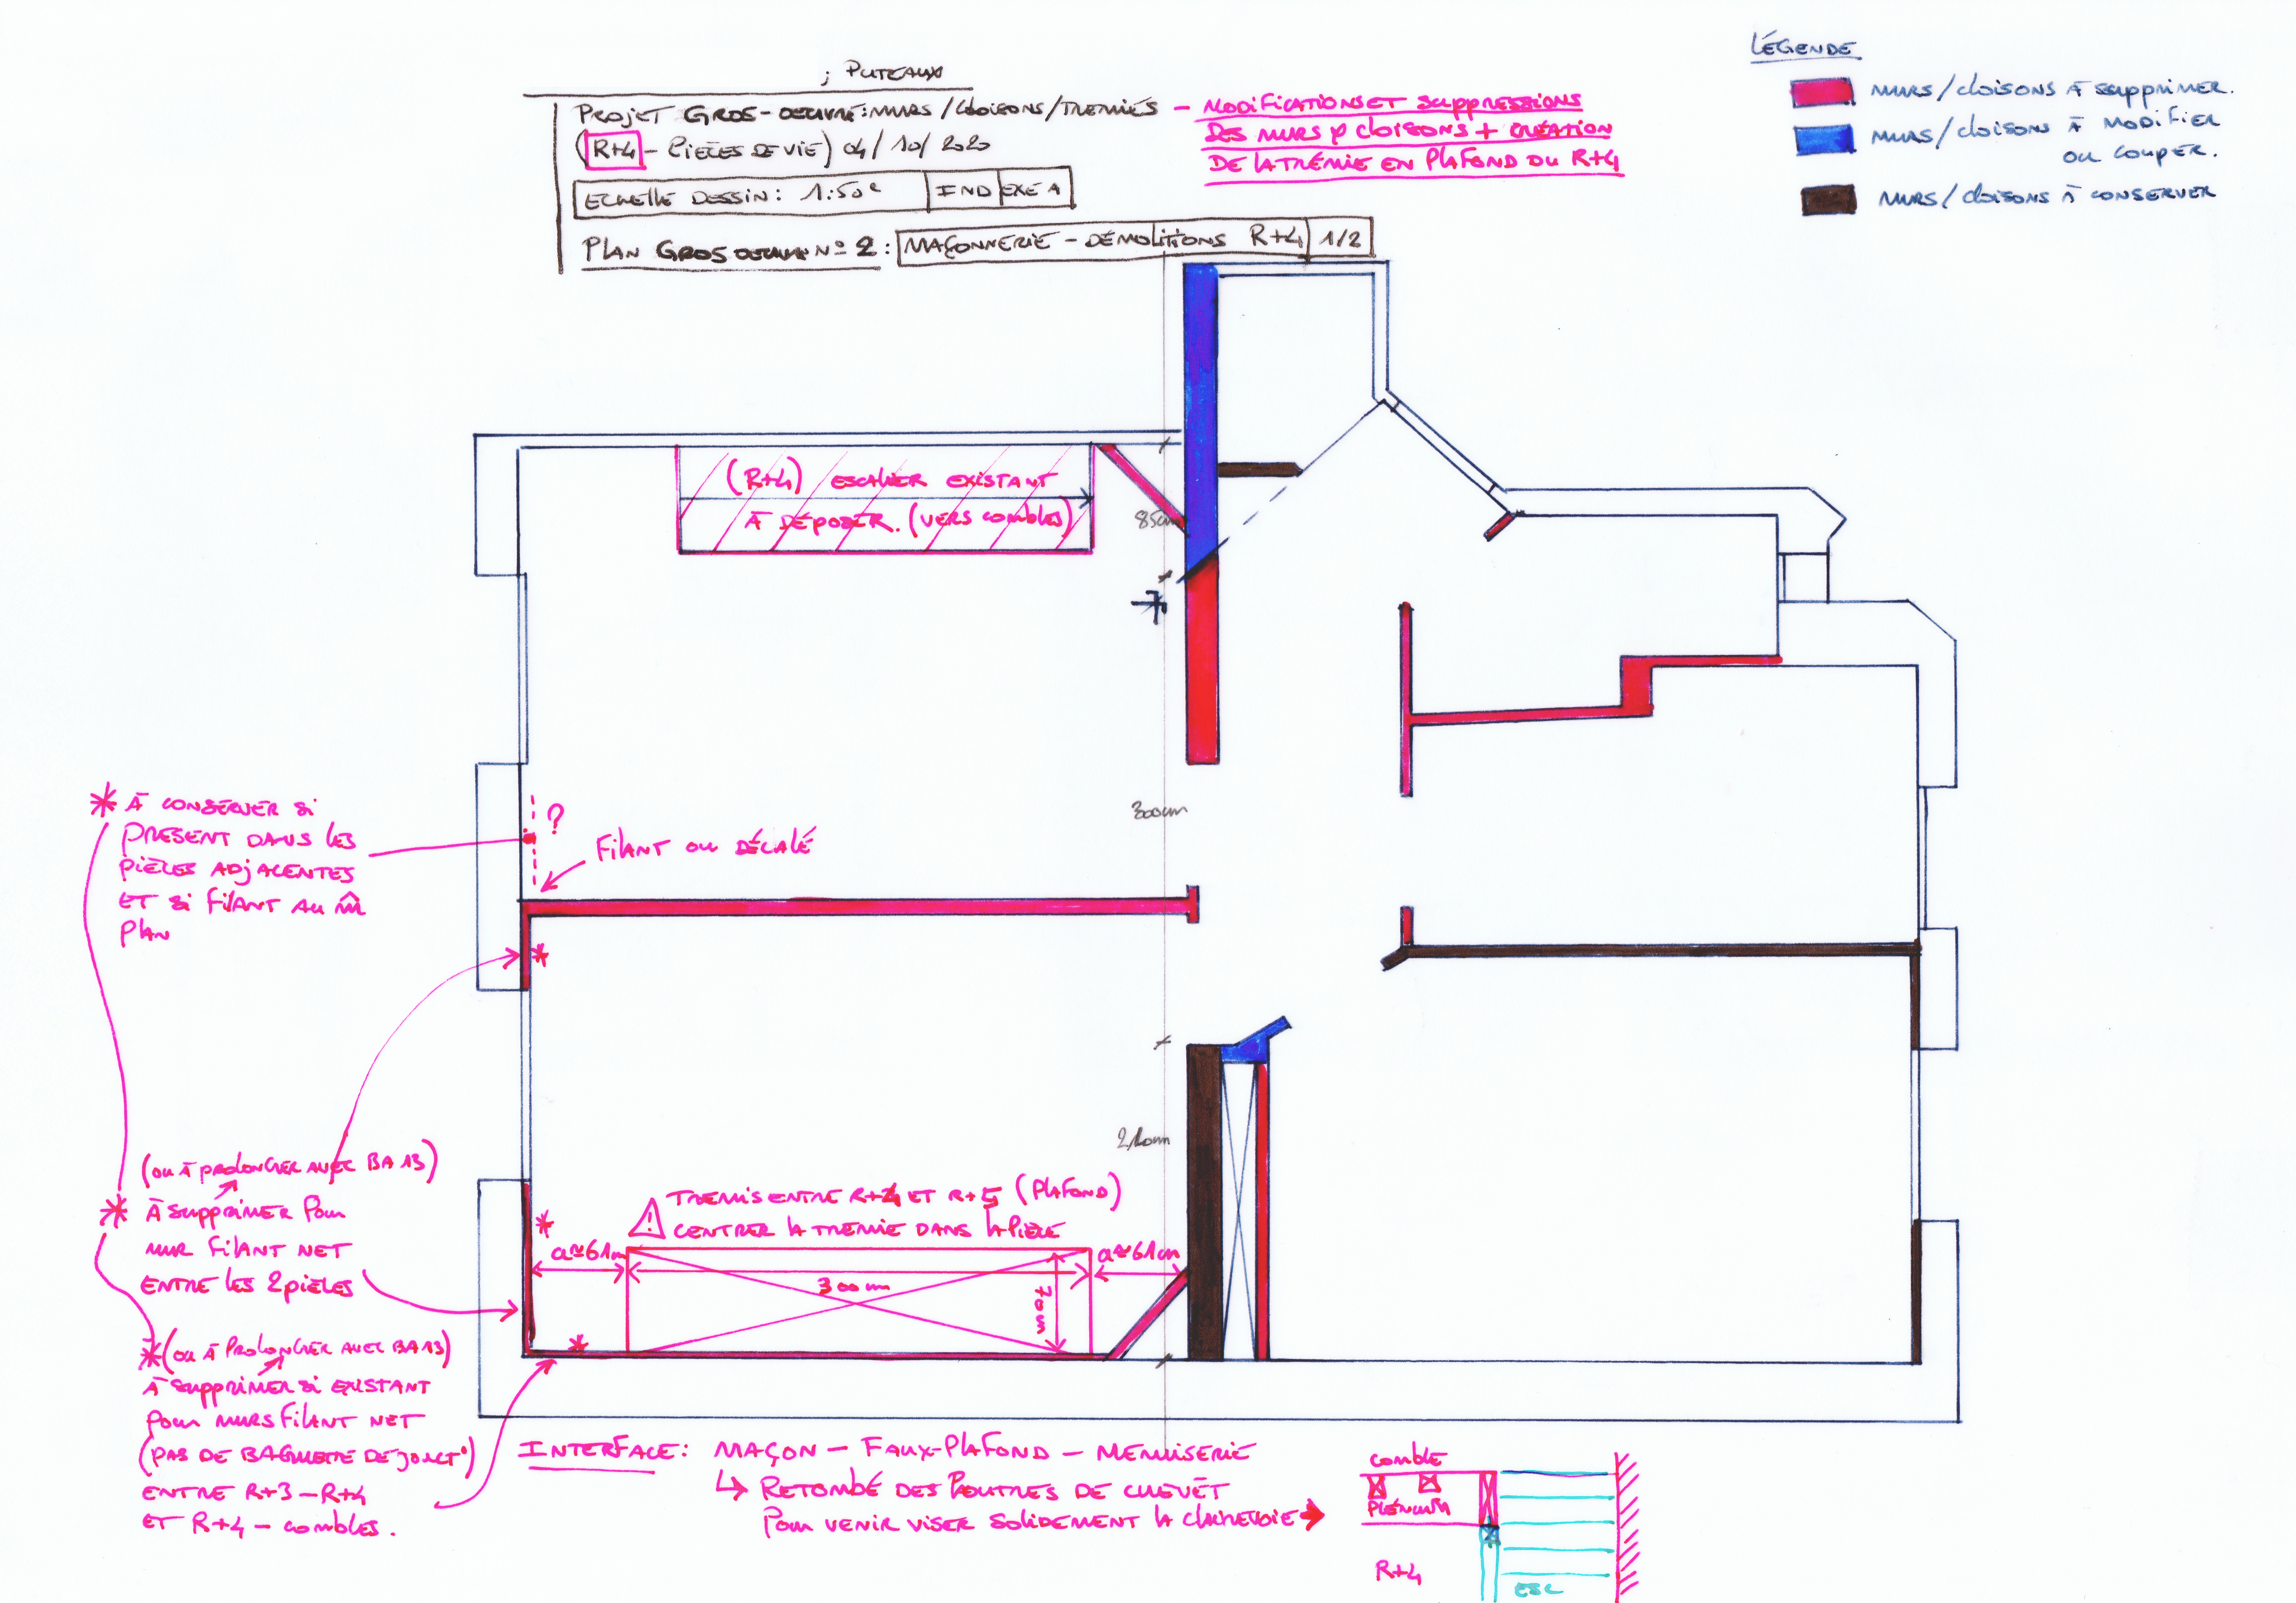 ; PUTEAUX
PROJET GROS-OEUVRE: MURS/CLOISONS/TREMIES - MODIFICATIONS ET SUPPRESSIONS
DES MURS & CLOISONS + CRÉATION
(R+4 - PIECES DE VIE) 04/10/2020
DE LA TRÉMIE EN PLAFOND DU R+4
ECHELLE DESSIN: 1:50e IND EXE A
PLAN GROS OEUVRE N° 2: MAÇONNERIE - DÉMOLITIONS R+4 1/2
LÉGENDE
MURS/CLOISONS À SUPPRIMER.
MURS/CLOISONS À MODIFIER
OU COUPER.
MURS/CLOISONS À CONSERVER
(R+4) ESCALIER EXISTANT
À DÉPOSER. (VERS COMBLES)
85cm
300cm
210cm
* À CONSERVER SI
PRESENT DANS LES
PIÈCES ADJACENTES
ET SI FILANT AU M̂
PLAN
?
FILANT OU DÉCALÉ
*
(OU À PROLONGER AVEC BA 13)
* À SUPPRIMER POUR
MUR FILANT NET
ENTRE LES 2 PIÈCES
*(OU À PROLONGER AVEC BA13)
À SUPPRIMER SI EXISTANT
POUR MURS FILANT NET
(PAS DE BAGUETTE DE JONCT°)
ENTRE R+3 - R+4
ET R+4 - COMBLES.
TREMIS ENTRE R+4 ET R+5 (PLAFOND)
! CENTRER LA TREMIE DANS LA PIÈCE
*
a≈61cm
300cm
70cm
a≈61cm
*
INTERFACE: MAÇON - FAUX-PLAFOND - MENUISERIE
↳ RETOMBÉ DES POUTRES DE CHEVÊT
POUR VENIR VISER SOLIDEMENT LA CLAIREVOIE →
COMBLE
PLÉNUM
R+4
ESC